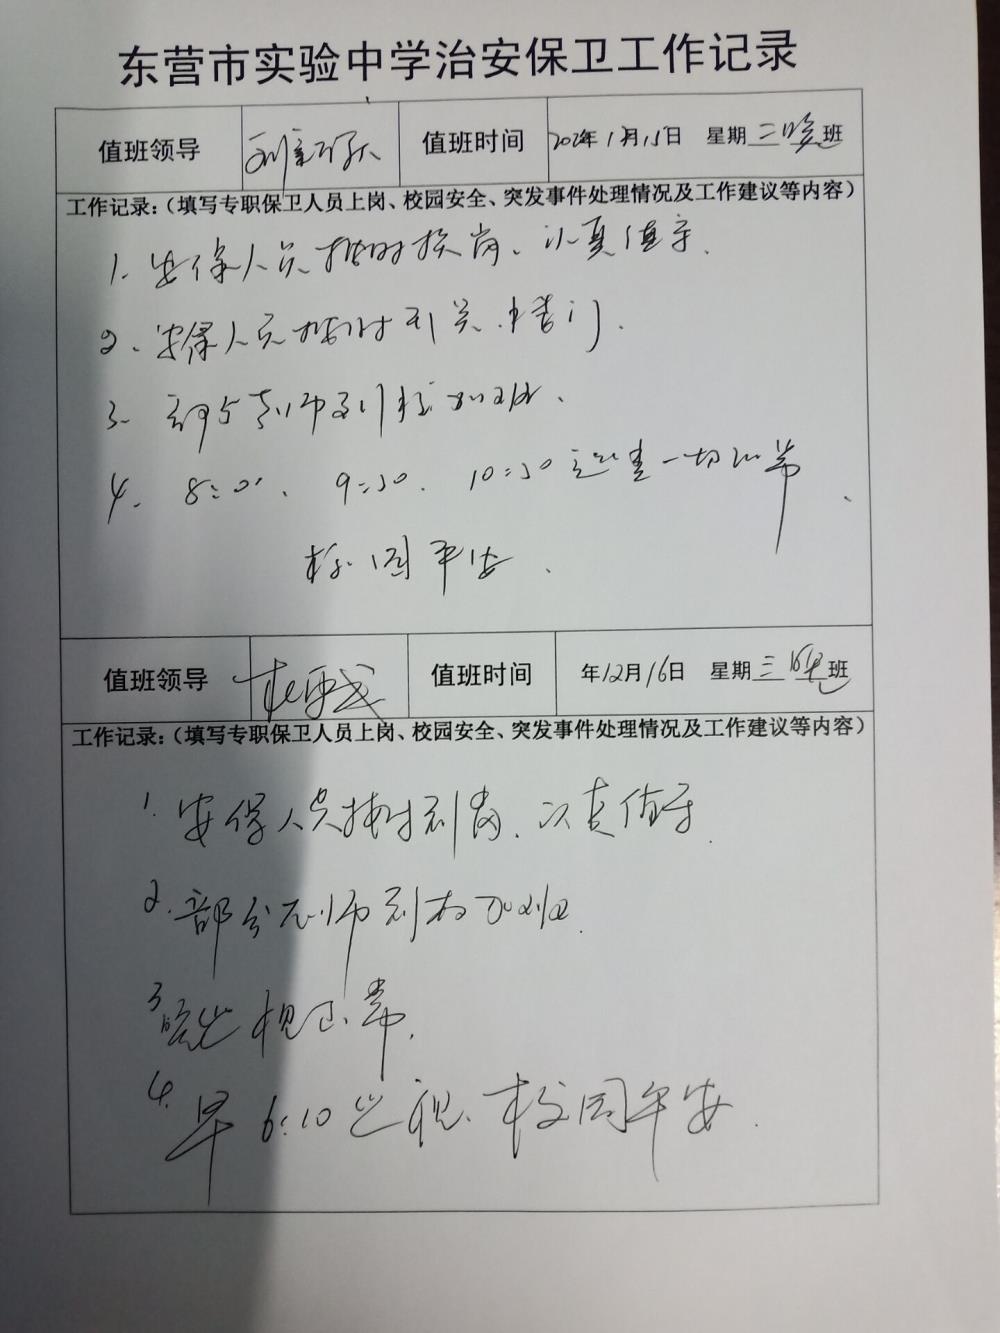 东营市实验中学治安保卫工作记录
值班领导 值班时间 年1月15日 星期二晚班
工作记录：（填写专职保卫人员上岗、校园安全、突发事件处理情况及工作建议等内容）
1. 安保人员按时换岗、认真值守.
2、安保人员按时开关 门.
3. 部分教师到校加班、
4、8:00、9:30、10:30巡查一切正常、
校园平安、
值班领导 值班时间 年12月16日 星期三晚班
工作记录：（填写专职保卫人员上岗、校园安全、突发事件处理情况及工作建议等内容）
1. 安保人员按时到岗、认真值守.
2. 部分教师到校加班.
3 晚巡视正常.
4. 早6:10巡视. 校园平安.